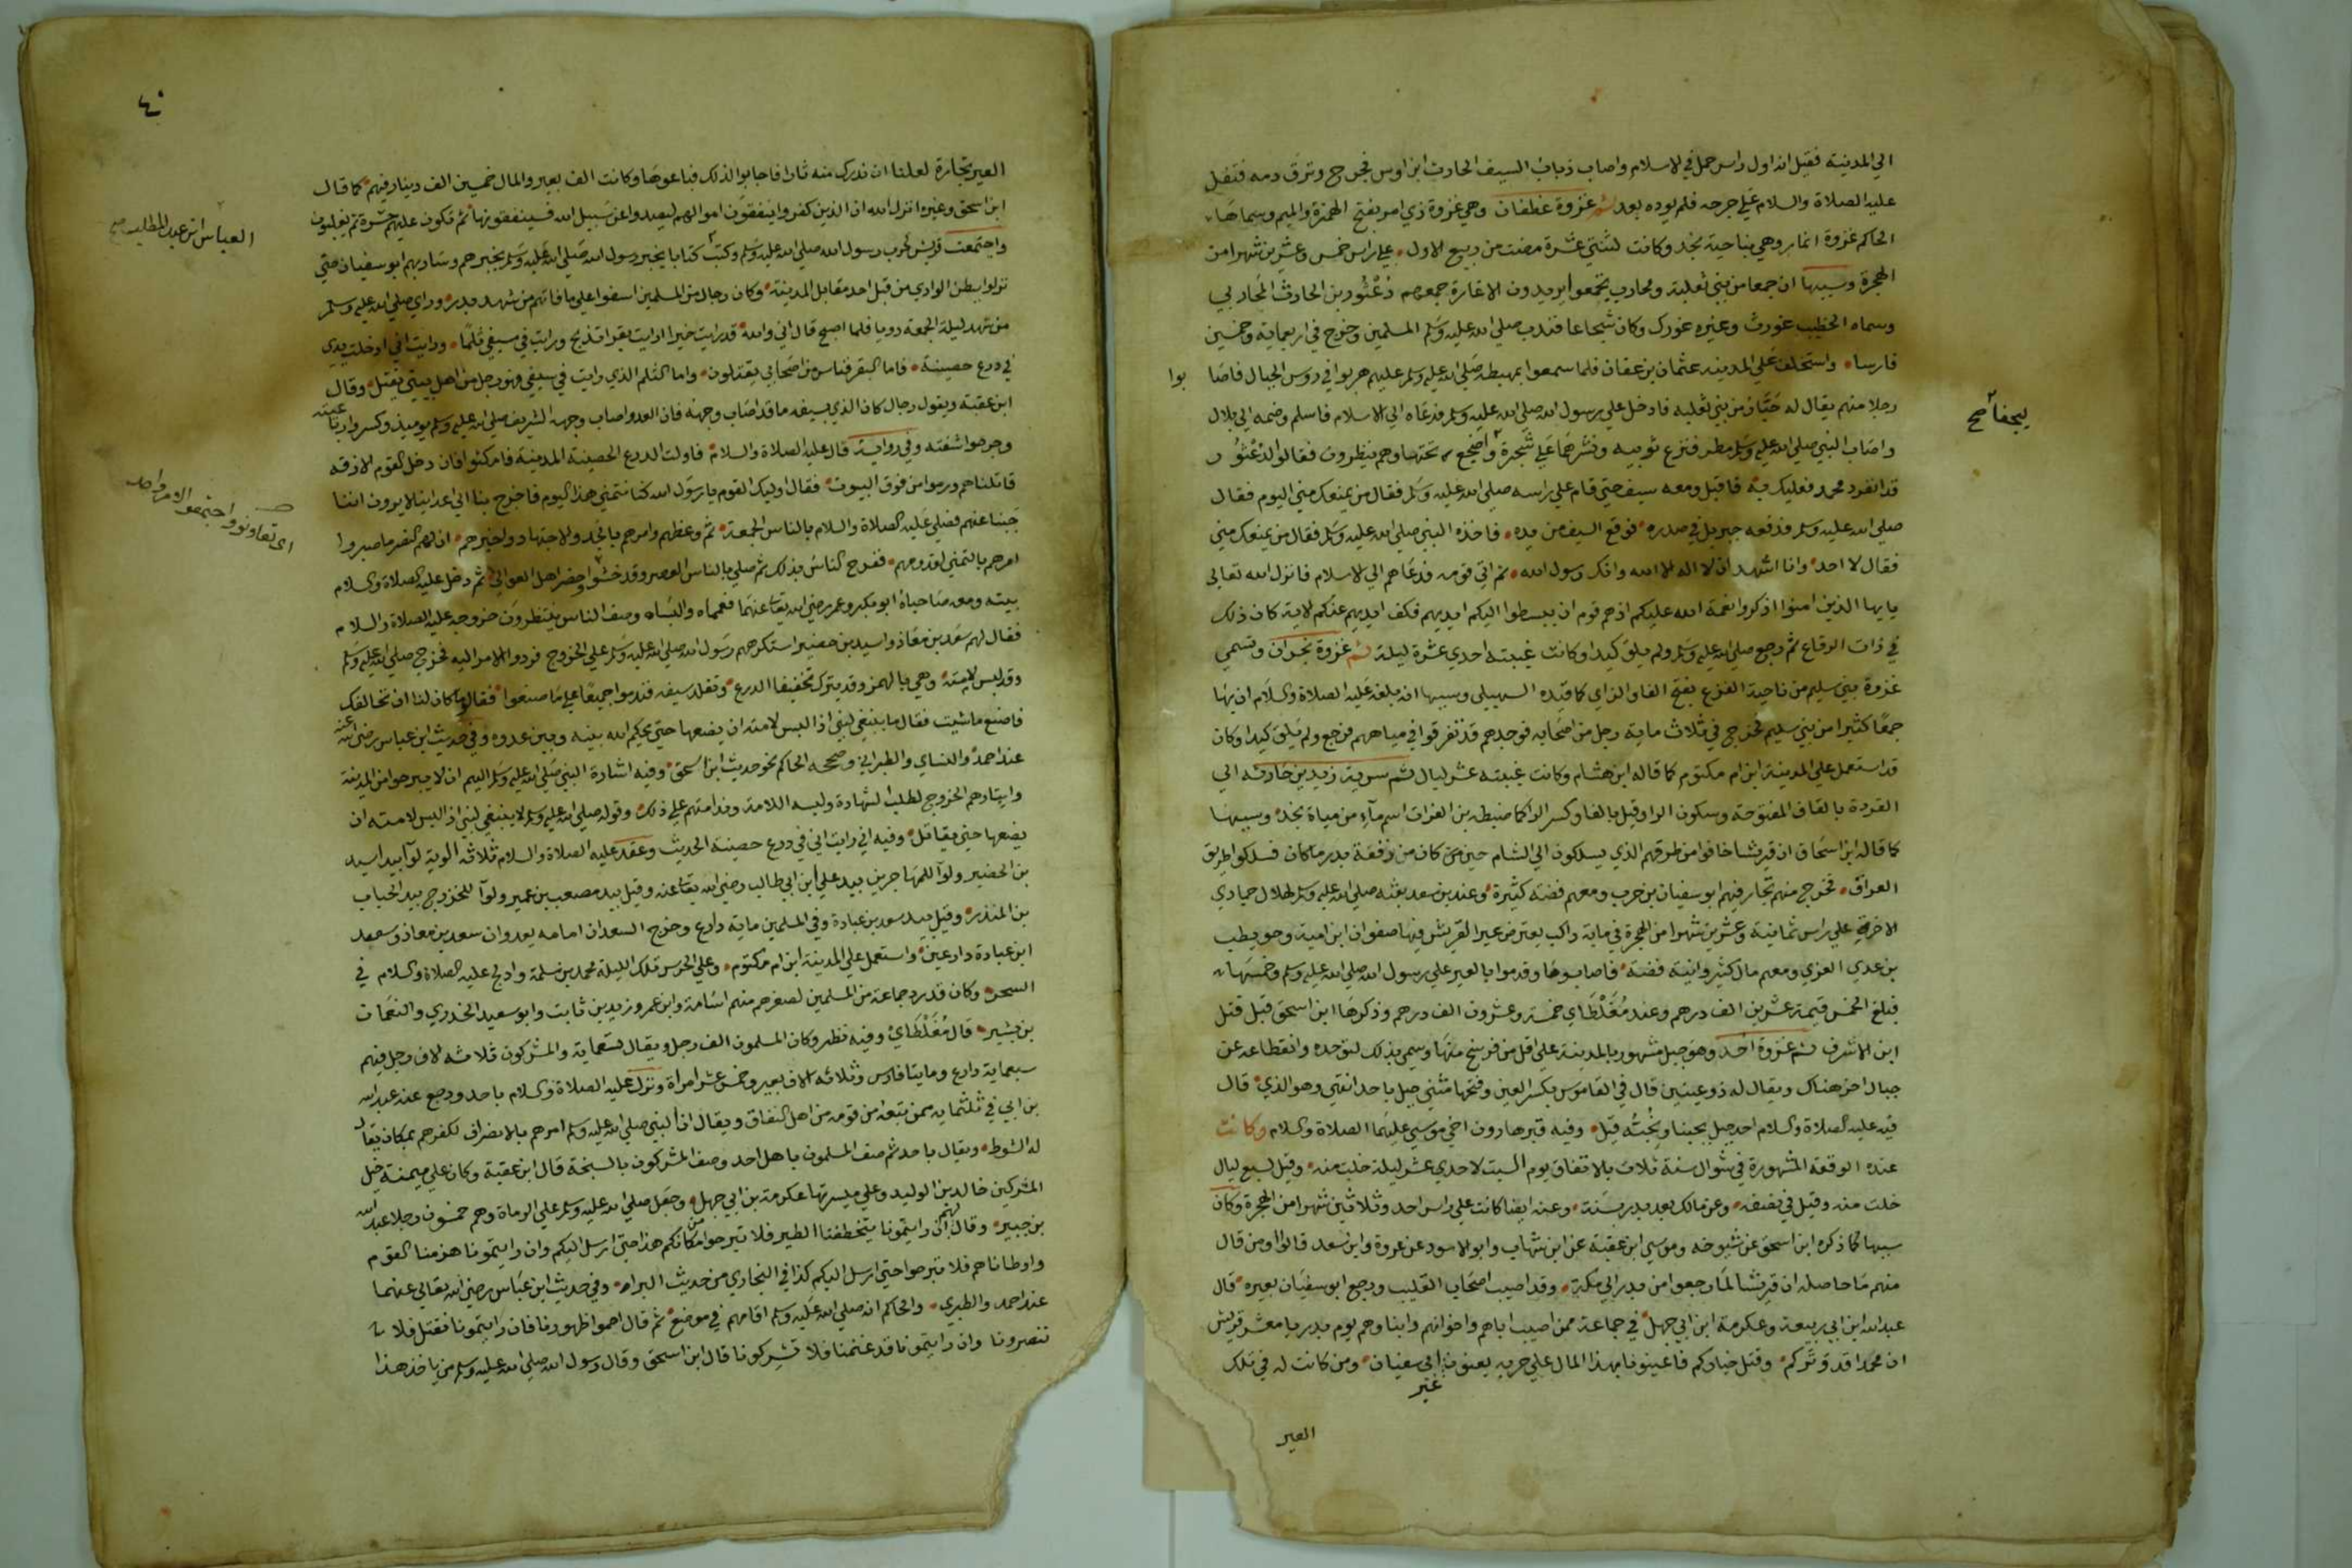 الي المدينة فقيل انه اول راس حمل في الاسلام واصاب ذباب السيف الحارث ابن اوس فجرح ونزف دمه فتفل
عليه الصلاة والسلام علي جرحه فلم يوذه بعد ثم غزوة غطفان وهي غزوة ذي امر بفتح الهمزة والميم وسماها
الحاكم غزوة انمار وهي بناحية نجد وكانت لثنتي عشرة مضت من ربيع الاول علي راس خمس وعشرين شهرا من
الهجرة وسببها ان جمعا من بني ثعلبة ومحارب تجمعوا يريدون الاغارة جمعهم دعثور بن الحارث المحاربي
وسماه الخطيب غورث وغيره غورك وكان شجاعا فندب صلي الله عليه وسلم المسلمين وخرج في اربعماية وخمسين
فارسا واستخلف علي المدينة عثمان بن عفان فلما سمعوا بمهبطه صلي الله عليه وسلم عليهم هربوا في روس الجبال فاصا
بوا
رجلا منهم يقال له حبان من بني ثعلبة فادخل علي رسول الله صلي الله عليه وسلم فدعاه الي الاسلام فاسلم وضمه الي بلال
واصاب النبي صلي الله عليه وسلم مطر فنزع ثوبيه ونشرهما علي شجرة واضجع تحتها وهم ينظرون فقالوا لدعثور
ليجفا صح
قد انفرد محمد فعليك به فاقبل ومعه سيف حتي قام علي راسه صلي الله عليه وسلم فقال من يمنعك مني اليوم فقال
صلي الله عليه وسلم فدفعه جبريل في صدره فوقع السيف من يده فاخذه النبي صلي الله عليه وسلم فقال من يمنعك مني
فقال لا احد وانا اشهد ان لا اله الا الله وانك رسول الله ثم اتي قومه فدعاهم الي الاسلام فانزل الله تعالي
يايها الذين امنوا اذكروا نعمة الله عليكم اذ هم قوم ان يبسطوا اليكم ايديهم فكف ايديهم عنكم الاية كان ذلك
في ذات الرقاع ثم رجع صلي الله عليه وسلم ولم يلق كيدا وكانت غيبته احدي عشرة ليلة ثم غزوة بحران وتسمي
غزوة بني سليم من ناحية الفرع بفتح الفا والراي كما قيده السهيلي وسببها انه بلغه عليه الصلاة والسلام ان بها
جمعا كثيرا من بني سليم فخرج في ثلاث ماية رجل من اصحابه فوجدهم قد تفرقوا في مياههم فرجع ولم يلق كيدا وكان
قد استعمل علي المدينة ابن ام مكتوم كما قاله ابن هشام وكانت غيبته عشر ليال ثم سرية زيد بن حارثه الي
القردة بالقاف المفتوحة وسكون الرا وقيل بالفا وكسر الرا كما ضبطه بن الفرات اسم ماء من مياة نجد وسببها
كما قاله ابن اسحاق ان قريشا خافوا من طرقهم الذي يسلكون الي الشام حين كان من وقعة بدر ما كان فسلكوا طريق
العراق فخرج منهم تجار فيهم ابو سفيان بن حرب ومعهم فضة كثيرة وعند بن سعد بعثه صلي الله عليه وسلم لهلال جمادي
الاخرة علي راس ثمانية وعشرين شهرا من الهجرة في ماية راكب يعترض عير القريش فيها صفوان ابن امية وحويطب
بن عدي العزي ومعهم مال كثير وانية فضة فاصابوها وقدموا بالعير علي رسول الله صلي الله عليه وسلم وخمسها
فبلغ الخمس قيمة عشرين الف درهم وعند مغلطاي خمسة وعشرون الف درهم وذكرها ابن اسحق قبل قتل
ابن الاشرف ثم غزوة احد وهو جبل مشهور بالمدينة علي اقل من فرسخ منها وسمي بذلك لتوحده وانقطاعه عن
جبال اخر هناك ويقال له ذو عينين قال في القاموس بكسر العين وفتحها مثني جبل باحد انتهي وهو الذي قال
فيه عليه الصلاة والسلام احد جبل يحبنا ونحبه قيل وفيه قبر هارون اخي موسي عليهما الصلاة والسلام وكانت
عنده الوقعة المشهورة في شوال سنة ثلاث بالاتفاق يوم السبت لاحدي عشر ليلة خلت منه وقيل لسبع ليال
خلت منه وقيل في نصفه وعن مالك بعد بدر بسنة وعنه ايضا كانت علي راس احد وثلاثين شهرا من الهجرة وكان
سببها كما ذكره ابن اسحق عن شيوخه وموسي ابن عقبة عن ابن شهاب وابو الاسود عن عروة وابن سعد قالوا او من قال
منهم ما حاصله ان قريشا لما رجعوا من بدر الي مكة وقد اصيب اصحاب القليب ورجع ابو سفيان بعيره قال
عبد الله ابن ابي ربيعة وعكرمة ابن ابي جهل في جماعة ممن اصيب اباهم واخوانهم وابناوهم يوم بدر يا معشر قريش
ان محمدا قد وتركم وقتل خياركم فاعينونا بهذا المال علي حربه يعنون ابي سفيان ومن كانت له في تلك
عير
العير
٤٠
العير تجارة لعلنا ان ندرك منه ثارا فاجابوا لذلك فباعوها وكانت الف بعير والمال خمسين الف دينار فيهم كما قال
ابن اسحق وغيره انزل الله ان الذين كفروا ينفقون اموالهم ليصدوا عن سبيل الله فسينفقونها ثم تكون عليهم حسرة ثم يغلبون
واجتمعت قريش لحرب رسول الله صلي الله عليه وسلم وكتب كتابا يخبر رسول الله صلي الله عليه وسلم بخبرهم وسار بهم ابو سفيان حتي
العباس ابن عبد المطلب صح
نزلوا ببطن الوادي من قبل احد مقابل المدينة وكان رجال من المسلمين اسفوا علي ما فاتهم من شهد بدر وراي صلي الله عليه وسلم
من شهد ليلة الجمعة رويا فلما اصبح قال اني والله قد رايت خيرا رايت بقرا تذبح ورايت في سيفي ثلما ورايت اني ادخلت يدي
في درع حصينة فاما البقر فناس من اصحابي يقتلون واما الثلم الذي رايت في سيفي فهو رجل من اهل بيتي يقتل وقال
ابن عقبة ويقول رجال كان الذي بسيفه ما قد اصاب وجهه فان العدو اصاب وجهه الشريف صلي الله عليه وسلم يوميذ وكسروا رباعيته
وجرحوا شفته وفي رواية قال عليه الصلاة والسلام فاولت الدرع الحصينة المدينة فامكثوا فان دخل القوم الازقه
قاتلناهم ورموا من فوق البيوت فقال اوليك القوم يا رسول الله كنا نتمني هذا اليوم فاخرج بنا الي اعداينا لا يرون اننا
جبنا عنهم فصلي عليه الصلاة والسلام بالناس الجمعة ثم وعظهم وامرهم بالجد والاجتهاد واخبرهم ان لهم النصر ما صبروا
امرهم بالتهيي لعدوهم ففرح الناس بذلك ثم صلي بالناس العصر وقد حشدوا وحضر اهل العوالي ثم دخل عليه الصلاة والسلام
اي تعاونوا واجتمعوا لامر واحد
بيته ومعه صاحباه ابو بكر وعمر رضي الله تعا عنهما فعمماه والبساه وصف الناس ينتظرون خروجه عليه الصلاة والسلام
فقال لهم سعد بن معاذ واسيد بن حضير استكرهتم رسول الله صلي الله عليه وسلم علي الخروج فردوا الامر اليه فخرج صلي الله عليه وسلم
وقد لبس لامته وهي بالهمز وقد يترك تخفيفا الدرع وتقلد سيفه فندموا جميعا علي ما صنعوا فقالوا ما كان لنا ان نخالفك
فاصنع ما شيت فقال ما ينبغي لنبي اذا لبس لامته ان يضعها حتي يحكم الله بينه وبين عدوه وفي حديث ابن عباس رضي الله عنه
عند احمد والنساي والطبراني وصححه الحاكم نحو حديث ابن اسحق وفيه اشارة النبي صلي الله عليه وسلم اليهم ان لا يبرحوا من المدينة
وايثارهم الخروج لطلب الشهادة ولبسه اللامة وندامتهم علي ذلك وقوله صلي الله عليه وسلم لا ينبغي لنبي اذا لبس لامته ان
يضعها حتي يقاتل وفيه اني رايت اني في درع حصينة الحديث وعقد عليه الصلاة والسلام ثلاثه الوية لوآ بيد اسيد
بن الحضير ولوآ للمهاجرين بيد علي ابن ابي طالب رضي الله تعا عنه وقيل بيد مصعب بن عمير ولوآ للخزرج بيد الحباب
بن المنذر وقيل بيد سعد بن عبادة وفي المسلمين ماية دارع وخرج السعدان امامه يعدوان سعد بن معاذ وسعد
ابن عبادة دارعين واستعمل علي المدينة ابن ام مكتوم وعلي الحرس تلك الليلة محمد بن سلمة وادلج عليه الصلاة والسلام في
السحر وكان قد رد جماعة من المسلمين لصغرهم منهم اسامة وابن عمر وزيد بن ثابت وابو سعيد الخدري والنعمان
بن بشير قال مغلطاي وفيه نظر وكان المسلمون الف رجل ويقال تسعماية والمشركون ثلاثه الاف رجل فيهم
سبعماية دارع ومايتا فارس وثلاثه الاف بعير وخمس عشر امراة ونزل عليه الصلاة والسلام باحد ورجع عنه عبد الله
بن ابي في ثلثماية ممن تبعه من قومه من اهل النفاق ويقال ان النبي صلي الله عليه وسلم امرهم بالانصراف لكفرهم بمكان يقال
له الشوط ويقال باحد ثم صف المسلمون باصل احد وصف المشركون بالسبخة قال ابن عقبة وكان علي ميمنة خيل
المشركين خالد بن الوليد وعلي ميسرتها عكرمة بن ابي جهل وجعل صلي الله عليه وسلم علي الرماة وهم خمسون رجلا عبد الله
بن جبير وقال لهم ان رايتمونا يتخطفنا الطير فلا تبرحوا من مكانكم هذا حتي ارسل اليكم وان رايتمونا هزمنا القوم
واوطاناهم فلا تبرحوا حتي ارسل اليكم كذا في البخاري من حديث البراء وفي حديث ابن عباس رضي الله تعالي عنهما
عند احمد والطبري والحاكم انه صلي الله عليه وسلم اقامهم في موضع ثم قال احموا ظهورنا فان رايتمونا نقتل فلا
تنصرونا وان رايتمونا قد غنمنا فلا تشركونا قال ابن اسحق وقال رسول الله صلي الله عليه وسلم من ياخذ هذا